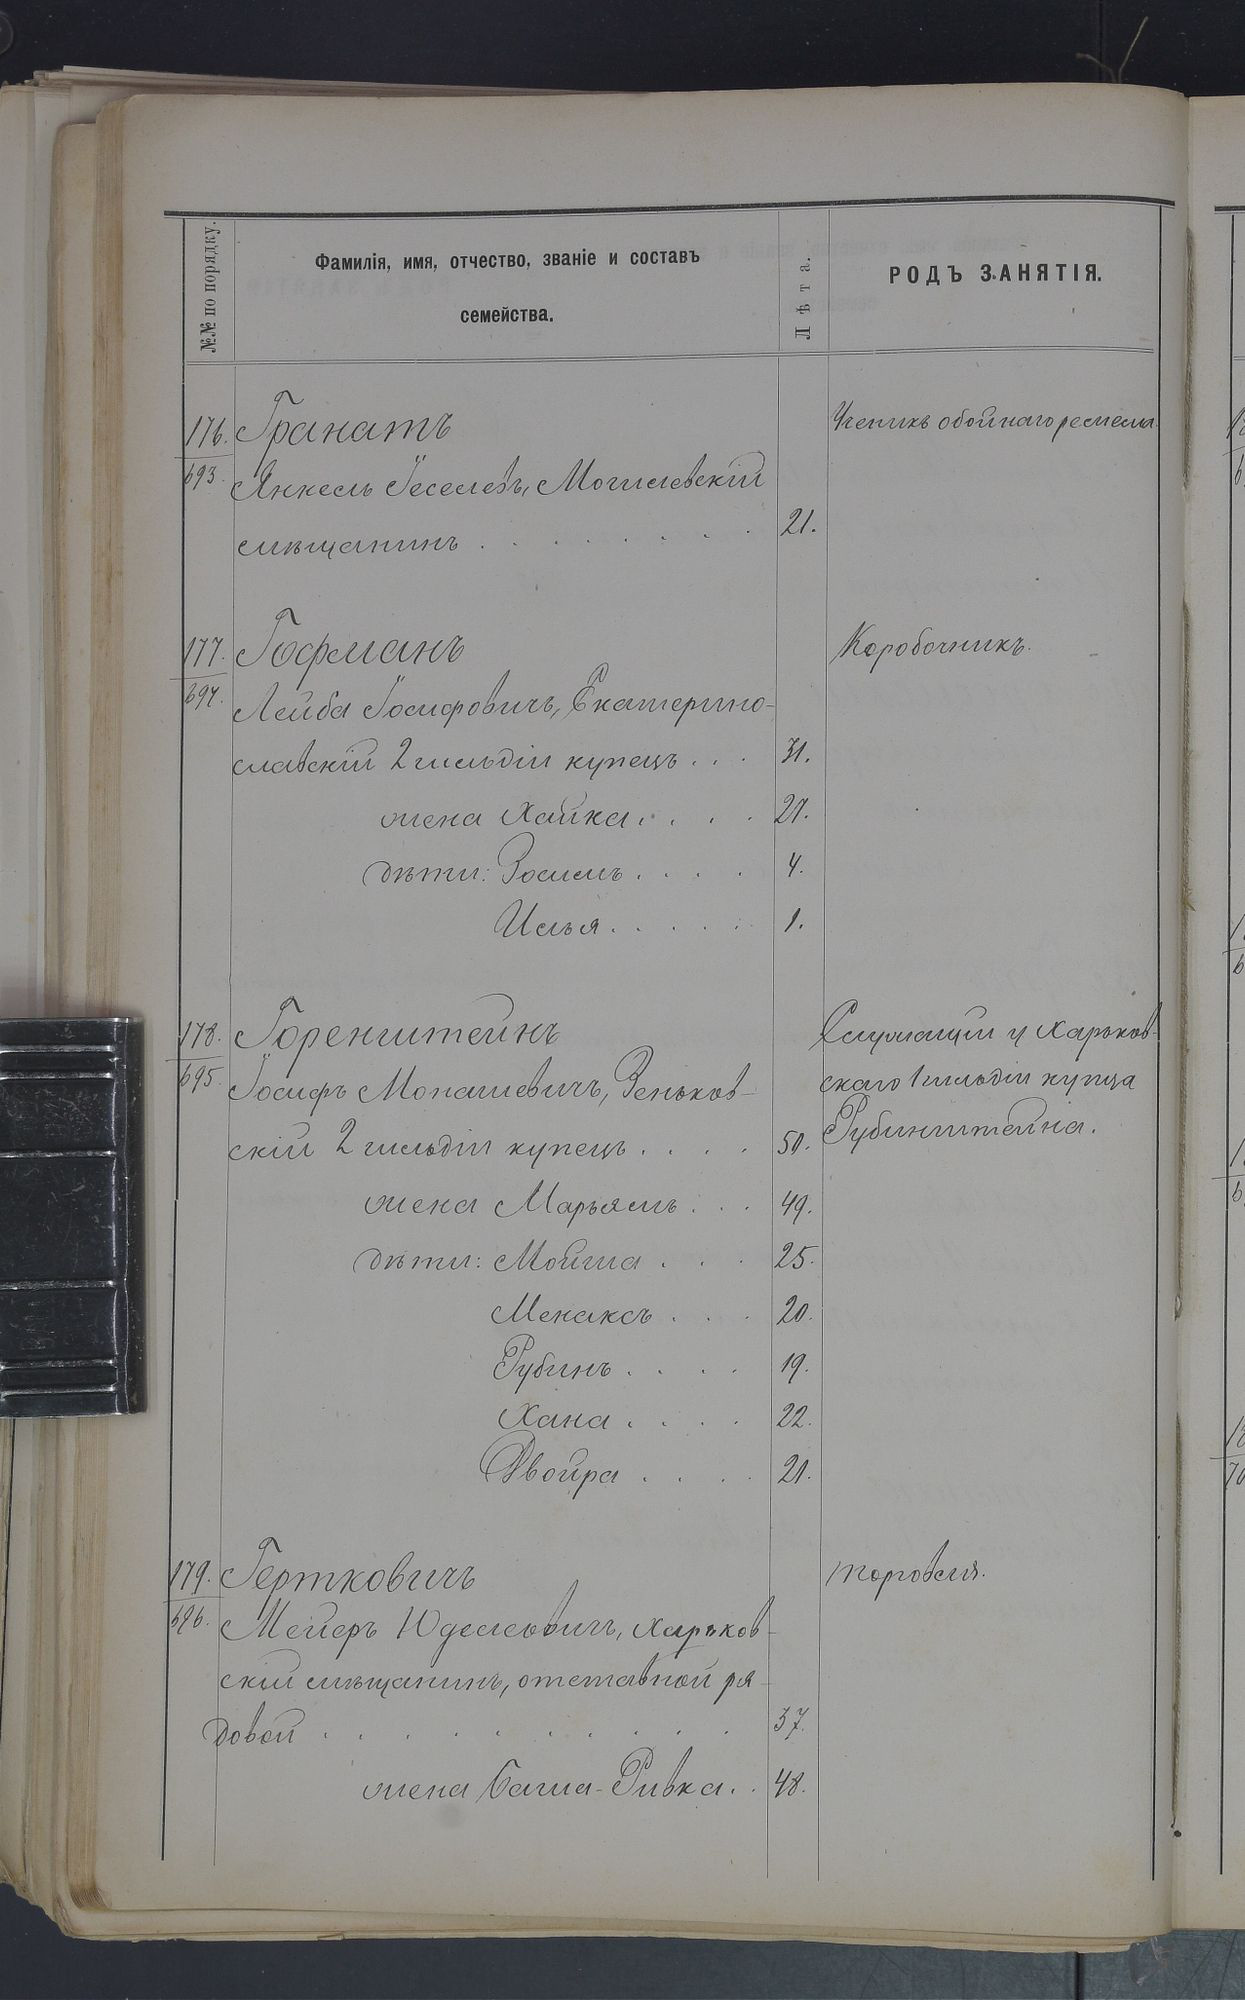 №№ по порядку.
Фамилія, имя, отчество, званіе и составъ
семейства.
Лѣта.
РОДЪ ЗАНЯТІЯ.
176. Гранатъ Ученикъ обойнаго ремесла.
693. Янкель Геселевъ, Могилевскій
мѣщанинъ . . . . . . . . 21.
177. Гофманъ Коробочникъ.
694. Лейба Іосифовичъ, Екатерино-
славскій 2 гильдіи купецъ . . . 31.
жена Хайка . . . . 27.
дѣти: . . . . 4.
Илья . . . . . 1.
178. Горенштейнъ Служащій у Харьков-
695. Іосифъ Монашевичъ, Зеньков- скаго 1 гильдіи купца
скій 2 гильдіи купецъ . . . . 50. Рубинштейна.
жена Марьямъ . . . 49.
дѣти: Мойша . . . 25.
20.
Рубинъ . . . . 19.
Хана . . . . 22.
Двойра . . . . 21.
179. Герtковичъ торговля.
696. Мейеръ Юделевичъ, Харьков-
скій мѣщанинъ, отставной ря-
довой . . . . . . . . . 37.
жена Баша-Ривка . . 48.